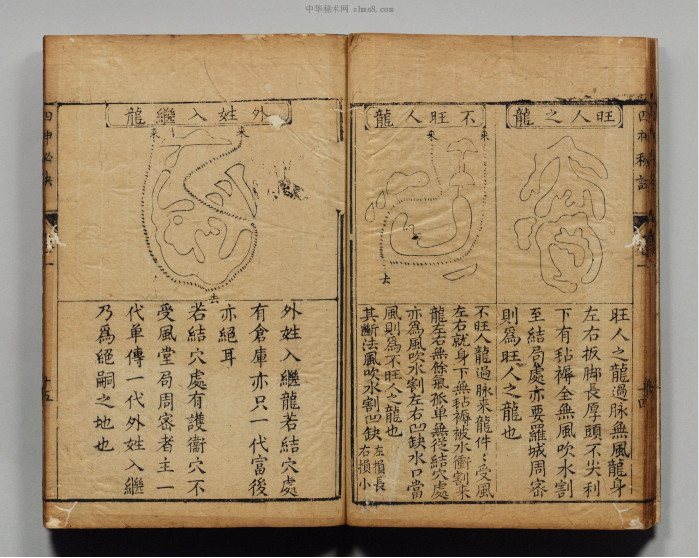 中华秘术网 zlms8.com
旺人之龍
旺人之龍過脉無風龍身
左右扳脚長厚頭不尖利
下有秥褥全無風吹水割
至結局處亦要羅城周密
則為旺人之龍也
不旺人龍
来
来
去
不旺人龍過脉来龍件〻受風
左右就身下無秥褥被水衝割来
龍左右無餘氣孤单無從結穴處
亦為風吹水割左右凹缺水口當
風則為不旺人之龍也
其斷法風吹水割凹缺左損長右損小
外姓入繼龍
来
来
去
外姓入繼龍若結穴處
有倉庫亦只一代富後
亦絕耳
若結穴處有護衛穴不
受風堂局周密者主一
代单傳一代外姓入繼
乃為絕嗣之地也
四神必決